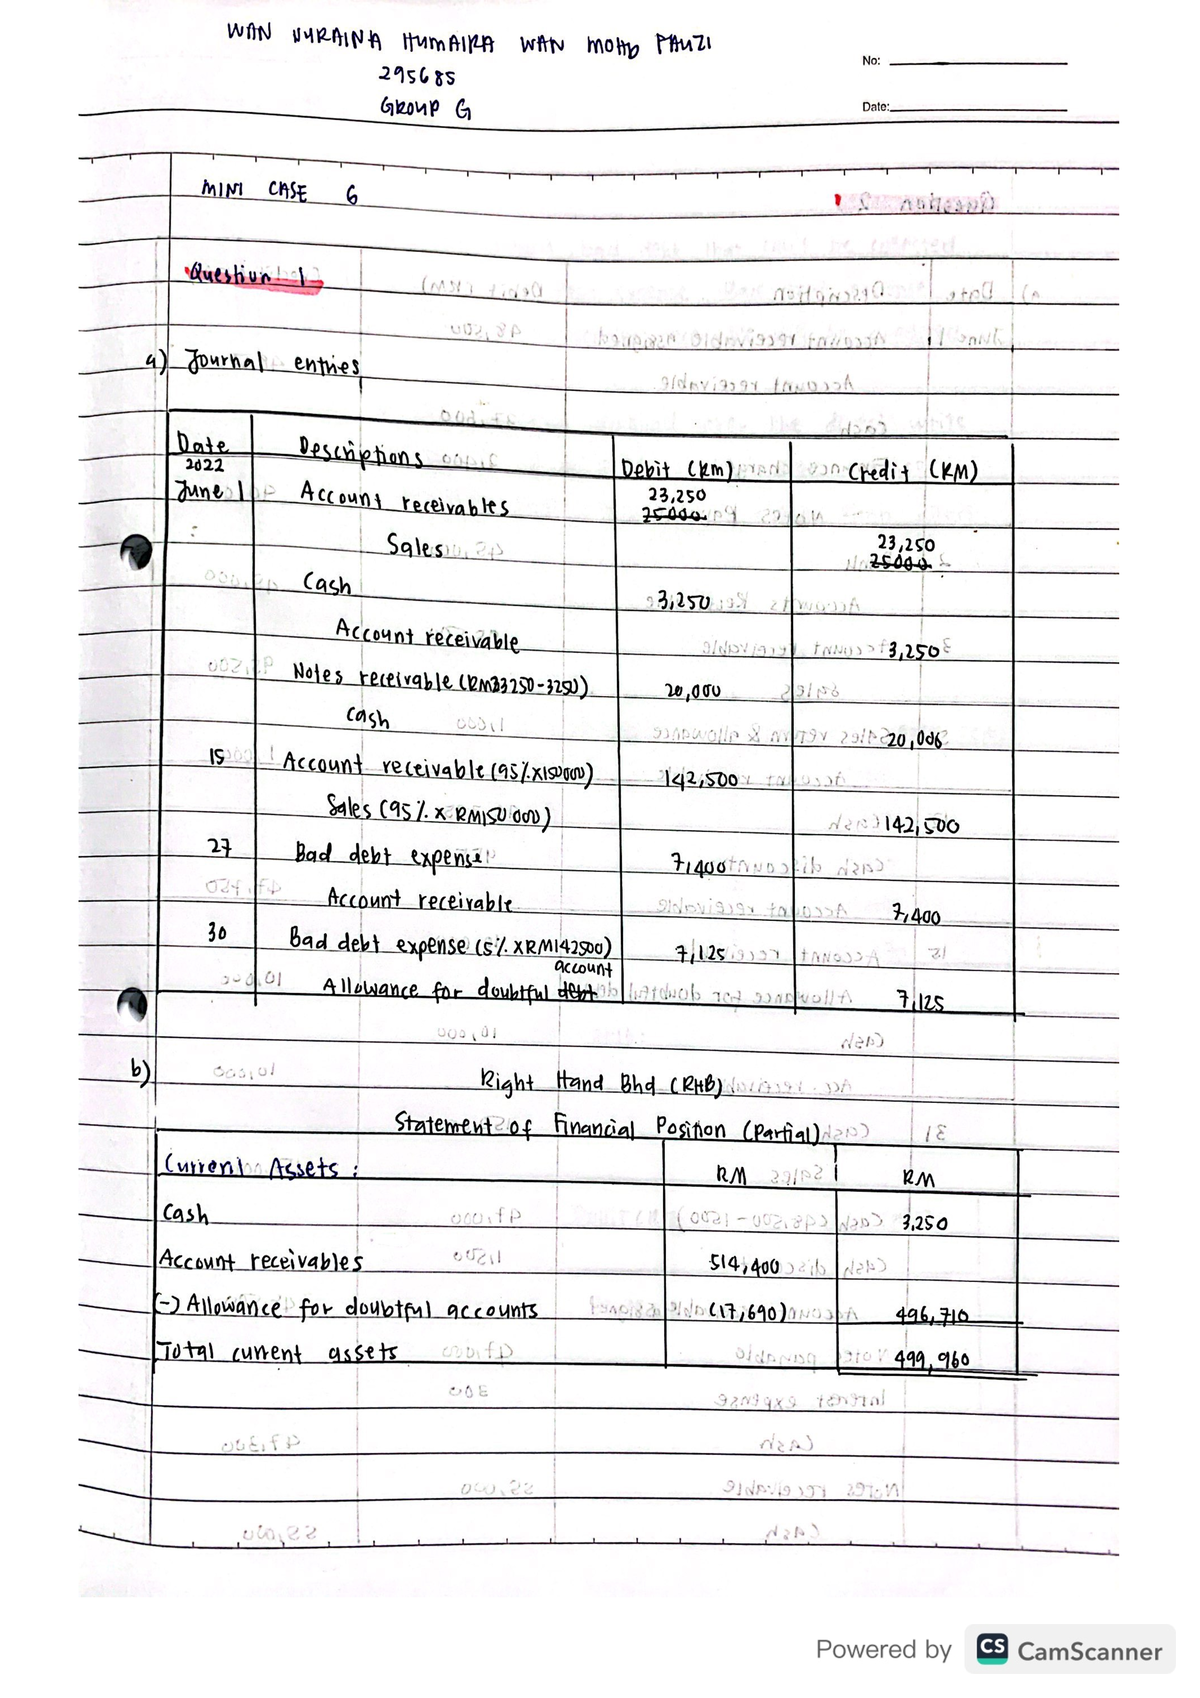 WAN NURAINA HUMAIRA WAN MOHD PAUZI
295685
GROUP G
No:
Date:
MINI CASE 6
Question 1
a) Journal entries
Date Descriptions Debit (RM) Credit (RM)
2022
June 1 Account receivables 23,250
25000
Sales 23,250
25000
Cash 3,250
Account receivable 3,250
Notes receivable (RM23250-3250) 20,000
Cash 20,000
15 Account receivable (95% X150000) 142,500
Sales (95% X RM150 000) 142,500
27 Bad debt expense 7,400
Account receivable 7,400
30 Bad debt expense (5% XRM142500) 7,125
account
Allowance for doubtful debt 7,125
b) Right Hand Bhd (RHB)
Statement of Financial Position (Partial)
Current Assets : RM RM
Cash 3,250
Account receivables 514,400
(-) Allowance for doubtful accounts (17,690) 496,710
Total current assets 499,960
Powered by CS CamScanner